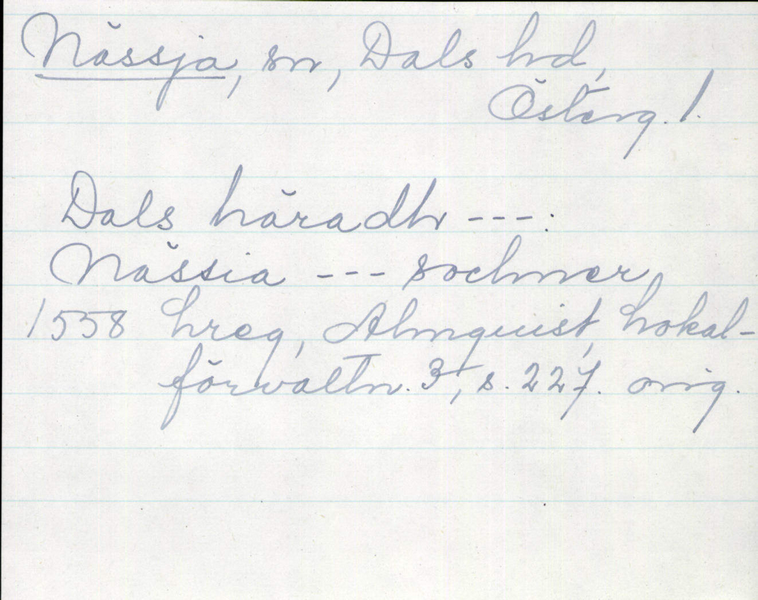 Nässja, sn, Dals hd,
Österg. l.
Dals häradh ---:
Nässia --- sochner
1558 Lreg, Almquist, Lokal-
förvaltn. 3, s. 227. orig.